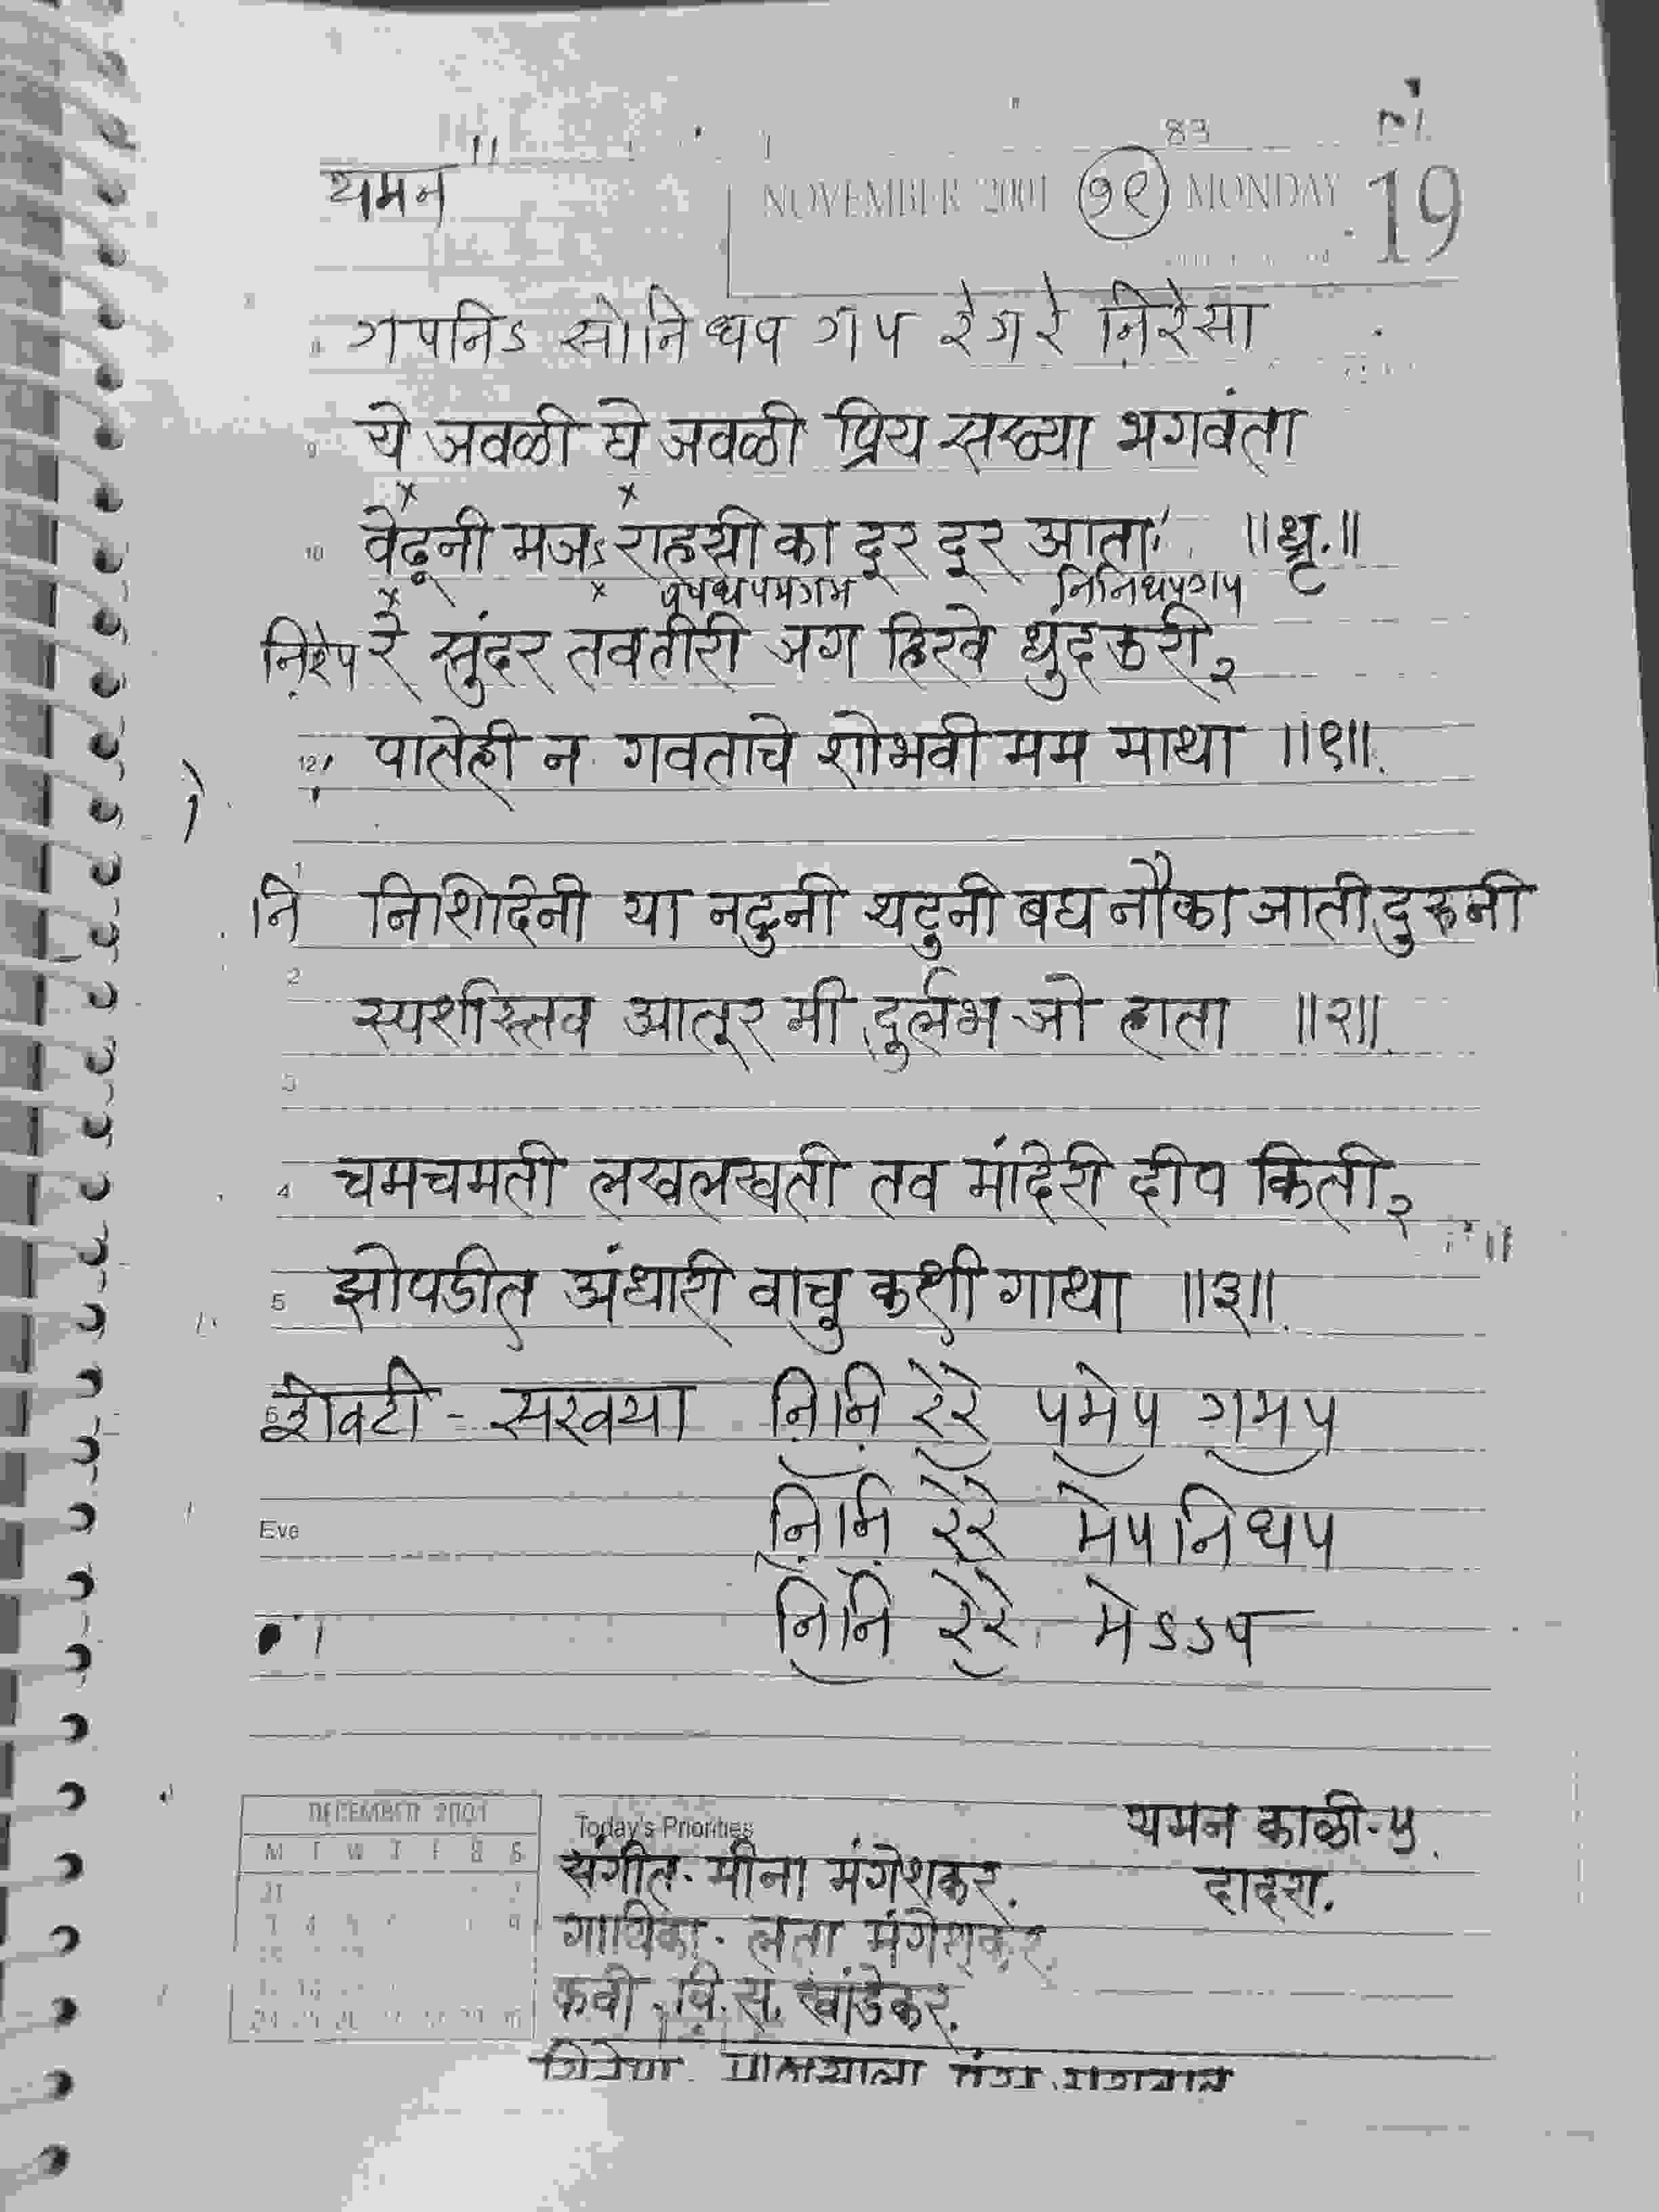 83
यमन
NOVEMBER 2001 ७९ MONDAY 19
गपनिऽ सांनि धप गप रेगरे नि़रेसा
ये जवळी घे जवळी प्रिय सख्या भगवंता
वेढूनी मजऽ राहसी का दूर दूर आता ॥धृ.॥
पपधपमगम निनिधपगप
नि़रेप रे सुंदर तवतीरी जग हिरवे धुंदकरी २
पातेही न गवताचे शोभवी मम माथा ॥१॥
नि निशिदिनी या नटुनी थटुनी बघ नौका जाती दुरूनी
स्पर्शास्तव आतूर मी दुर्लभ जो हाता ॥२॥
चमचमती लखलखती तव मंदिरी दीप किती २
झोपडीत अंधारी वाचु कशी गाथा ॥३॥
शेवटी - सख्या नि़नि़ रेरे पमेप गमप
Eve नि़नि़ रेरे मेपनिधप
नि़नि़ रेरे मेऽऽप
DECEMBER 2001
Today's Priorities
यमन काळी-५
संगीत. मीना मंगेशकर.
दादरा.
गायिका. लता मंगेशकर.
कवी. वि. स. खांडेकर.